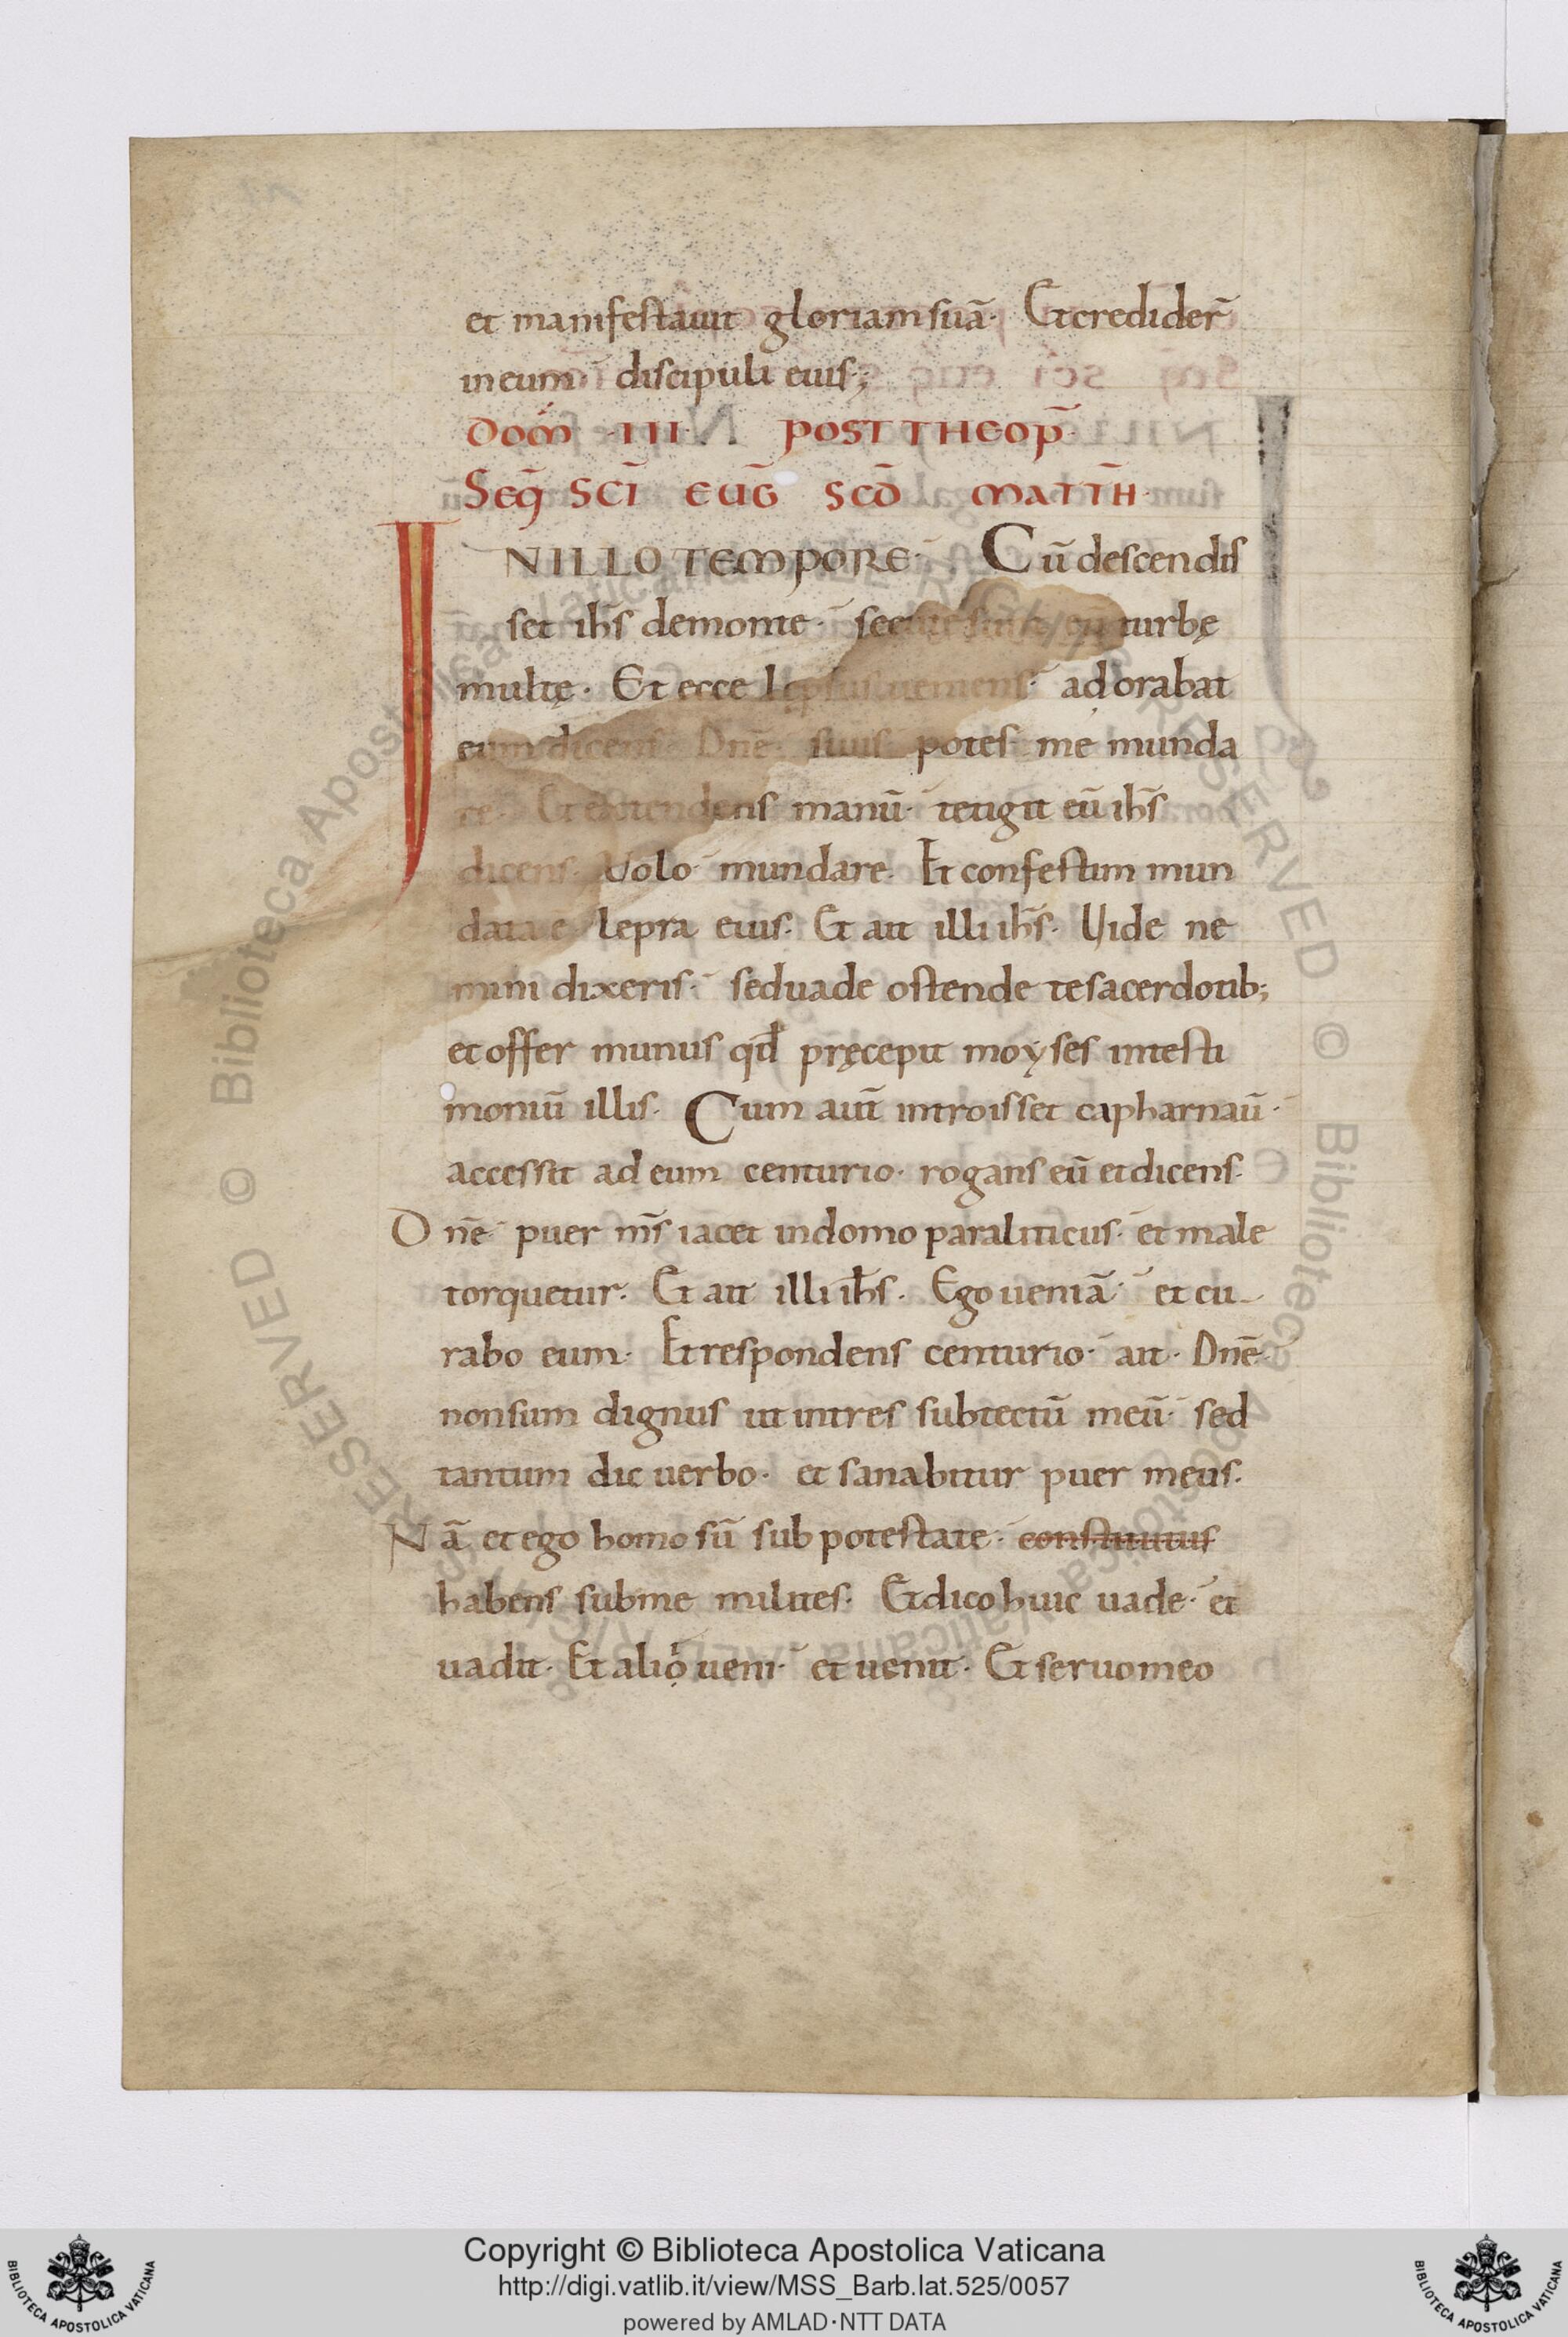 et manifestauit gloriam suā. Et credider̄
in eum discipuli eius;
Dom̄ .III. POST THEOP̄.
Seq̄ SC̄I EUḠ SCD̄ MATTH̄.
IN ILLO TEMPORE. Cū descendis
set ih̄s de monte. secutę sunt eū turbę
multę. Et ecce leprosus ueniens. adorabat
eum dicens. Dn̄e. si uis potes me munda
re. Et extendens manū. tetigit eū ih̄s
dicens. Volo mundare. Et confestim mun
data ē lepra eius. Et ait illi ih̄s. Uide ne
mini dixeris. sed uade ostende te sacerdotib;
et offer munus qđ pręcepit moẏses in testi
moniū illis. Cum aut̄ introisset capharnaū.
accessit ad eum centurio. rogans eū et dicens.
Dn̄e puer m̄s iacet in domo paraliticus. et male
torquetur. Et ait illi ih̄s. Ego ueniā. et cu
rabo eum. Et respondens centurio. ait. Dn̄e
non sum dignus ut intres sub tectū meū. sed
tantum dic uerbo. et sanabitur puer meus.
Nā et ego homo sū sub potestate. constitutus
habens sub me milites. Et dico huic uade. et
uadit. Et alio ueni. et uenit. Et seruo meo
Copyright © Biblioteca Apostolica Vaticana
http://digi.vatlib.it/view/MSS_Barb.lat.525/0057
powered by AMLAD·NTT DATA